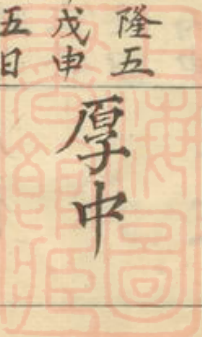 隆五
戊申
五日
厚中